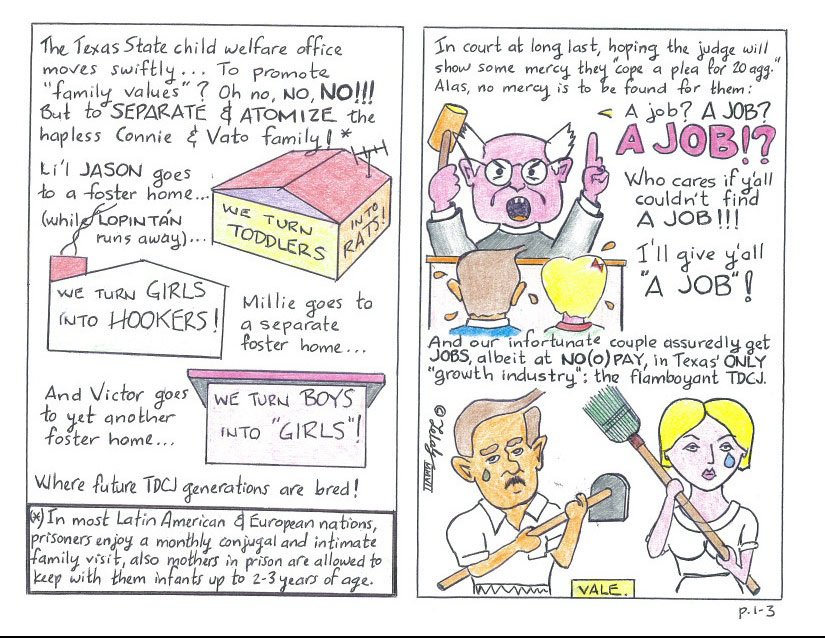 The Texas State child welfare office
moves swiftly... To promote
"family values"? Oh no, NO, NO!!!
But to SEPARATE & ATOMIZE the
hapless Connie & Vato family!*
Li'l JASON goes
to a foster home...
(while LOPINTÁN
runs away)...
WE TURN
TODDLERS
INTO
RATS!
WE TURN GIRLS
INTO HOOKERS!
Millie goes to
a separate
foster home...
And Victor goes
to yet another
foster home...
WE TURN BOYS
INTO "GIRLS"!
Where future TDCJ generations are bred!
(*) In most Latin American & European nations,
prisoners enjoy a monthly conjugal and intimate
family visit, also mothers in prison are allowed to
keep with them infants up to 2-3 years of age.
In court at long last, hoping the judge will
show some mercy they "cope a plea for 20 agg."
Alas, no mercy is to be found for them:
A job? A JOB?
A JOB!?
Who cares if y'all
couldn't find
A JOB!!!
I'll give y'all
"A JOB"!
And our infortunate couple assuredly get
JOBS, albeit at NO(0) PAY, in Texas' ONLY
"growth industry": the flamboyant TDCJ.
VALE.
p.1-3